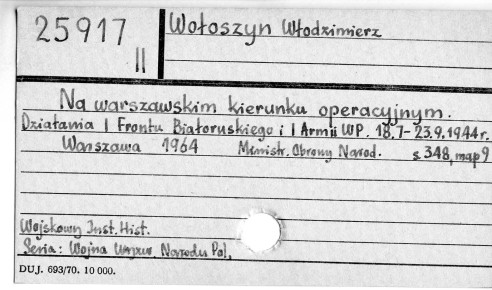 25917
II
Wołoszyn Włodzimierz
Na warszawskim kierunku operacyjnym.
Działania I Frontu Białoruskiego i I Armii WP. 18.7-23.9.1944r.
Warszawa 1964 Ministr. Obrony Narod. s.348, map 9
Wojskowy Inst. Hist.
Seria: Wojna Wyzw. Narodu Pol.
DUJ. 693/70. 10 000.